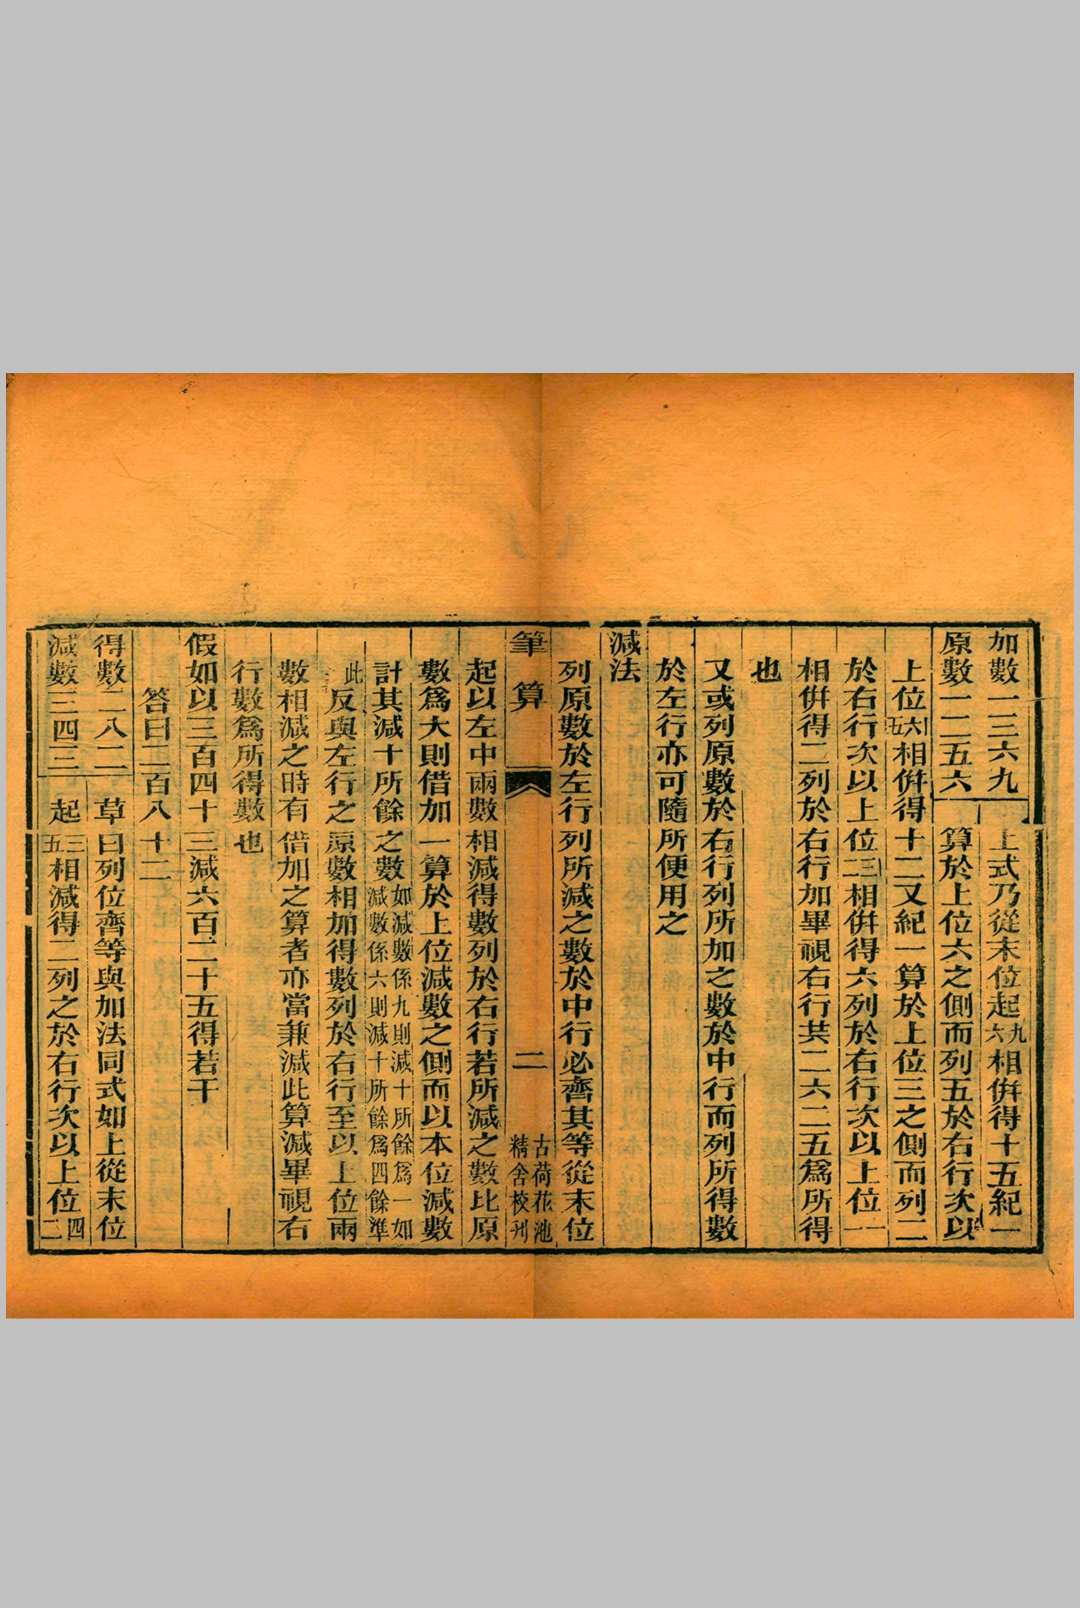 加數一三六九　上式乃從末位起九六相併得十五紀一
原數一二五六　算於上位六之側而列五於右行次以
上位六五相併得十二又紀一算於上位三之側而列二
於右行次以上位三二相併得六列於右行次以上位一一
相併得二列於右行加畢視右行共二六二五爲所得
也
又或列原數於右行列所加之數於中行而列所得數
於左行亦可隨所便用之
減法
列原數於左行列所減之數於中行必齊其等從末位
筆算　二　古荷花池精舍校刋
起以左中兩數相減得數列於右行若所減之數比原
數爲大則借加一算於上位減數之側而以本位減數
計其減十所餘之數如減數係九則減十所餘爲一如減數係六則減十所餘爲四餘準
此反與左行之原數相加得數列於右行至以上位兩
數相減之時有借加之算者亦當兼減此算減畢視右
行數爲所得數也
假如以三百四十三減六百二十五得若干
答曰二百八十二
得數二八二　草曰列位齊等與加法同式如上從末位
減數三四三　起三五相減得二列之於右行次以上位四二